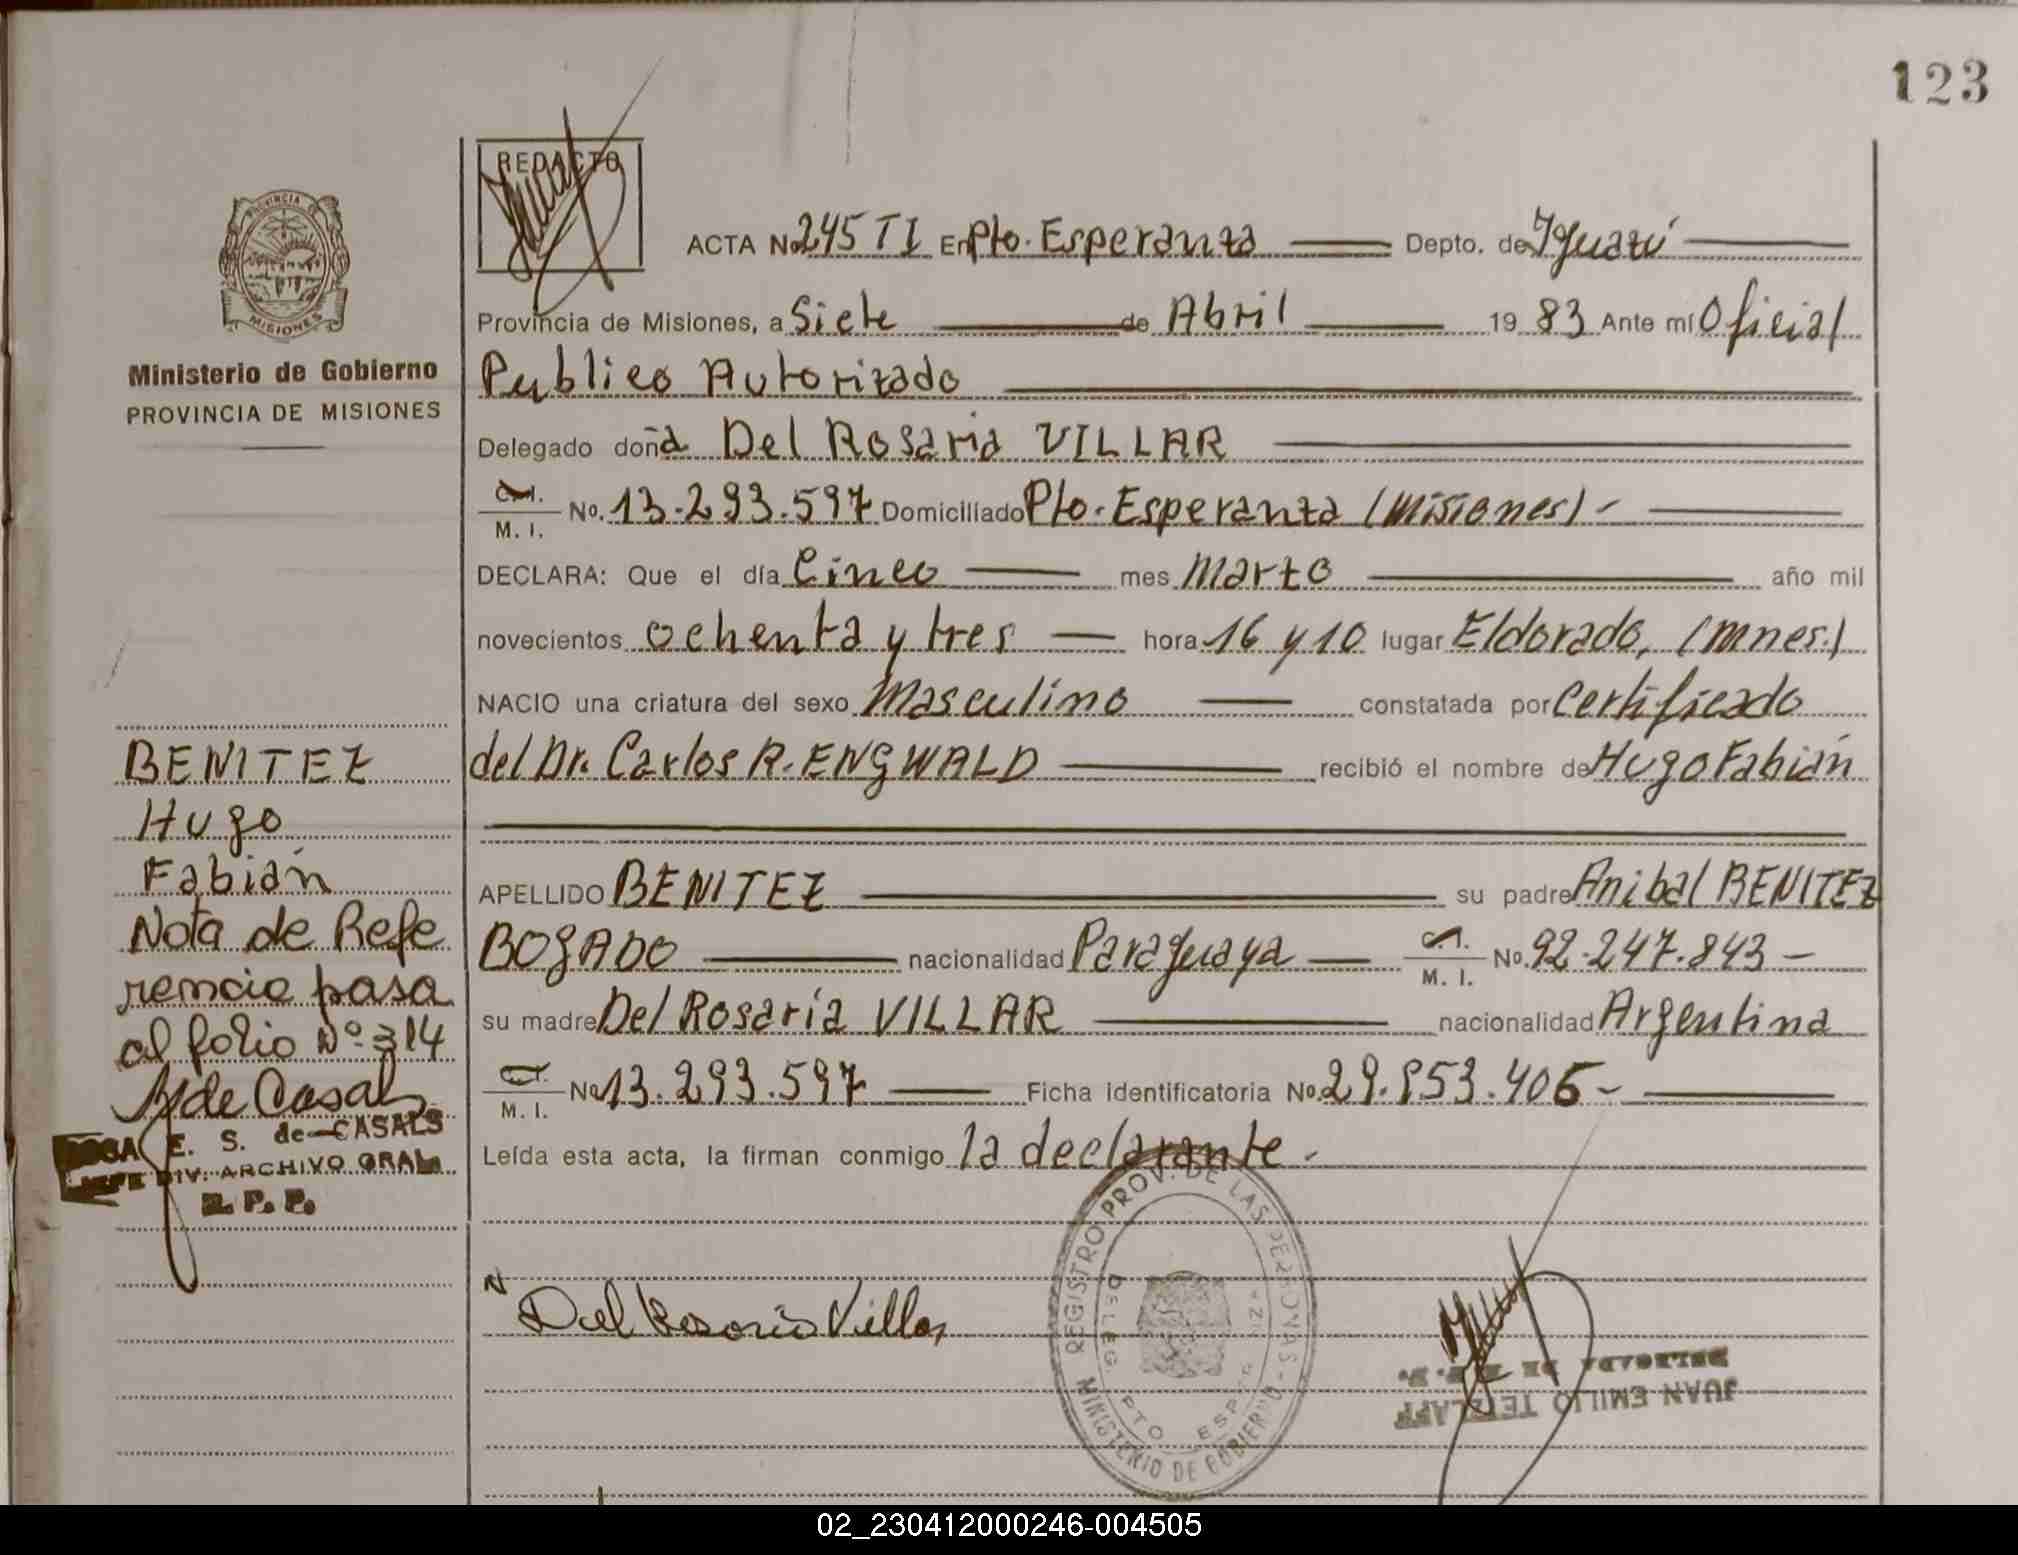 123
REDACTO
PROVINCIA DE
MISIONES
ACTA No 245 TI En Pto. Esperanza Depto. de Iguazú
Provincia de Misiones, a Siete de Abril 19 83 Ante mí Oficial
Ministerio de Gobierno
PROVINCIA DE MISIONES
Publico Autorizado
Delegado doña Del Rosaria VILLAR
C.I.
M. I.
No. 13.293.597 Domiciliado Pto. Esperanza (Misiones) -
DECLARA: Que el día Cinco mes Marzo año mil
novecientos ochenta y tres hora 16 y 10 lugar Eldorado, (Mnes.)
NACIO una criatura del sexo Masculino constatada por Certificado
del Dr. Carlos R. ENGWALD recibió el nombre de Hugo Fabián
BENITEZ
Hugo
Fabián
Nota de Refe
rencia pasa
al folio Nº 314
APELLIDO BENITEZ su padre Anibal BENITEZ
BOGADO nacionalidad Paraguaya C.I. M. I. No. 92.247.843 -
su madre Del Rosaria VILLAR nacionalidad Argentina
C.I.
M. I.
No 13.293.597 Ficha identificatoria No. 29.853.406 -
Leída esta acta, la firman conmigo la declarante -
E. S. de CASALS
JEFE DIV. ARCHIVO GRAL.
R. P. P.
Del Rosario Villar
REGISTRO PROV. DE LAS PERSONAS
MINISTERIO DE GOBIERNO
DELEG. PTO ESP
DELEGADA DE R. P.
JUAN EMILIO TETZLAFF
02_230412000246-004505